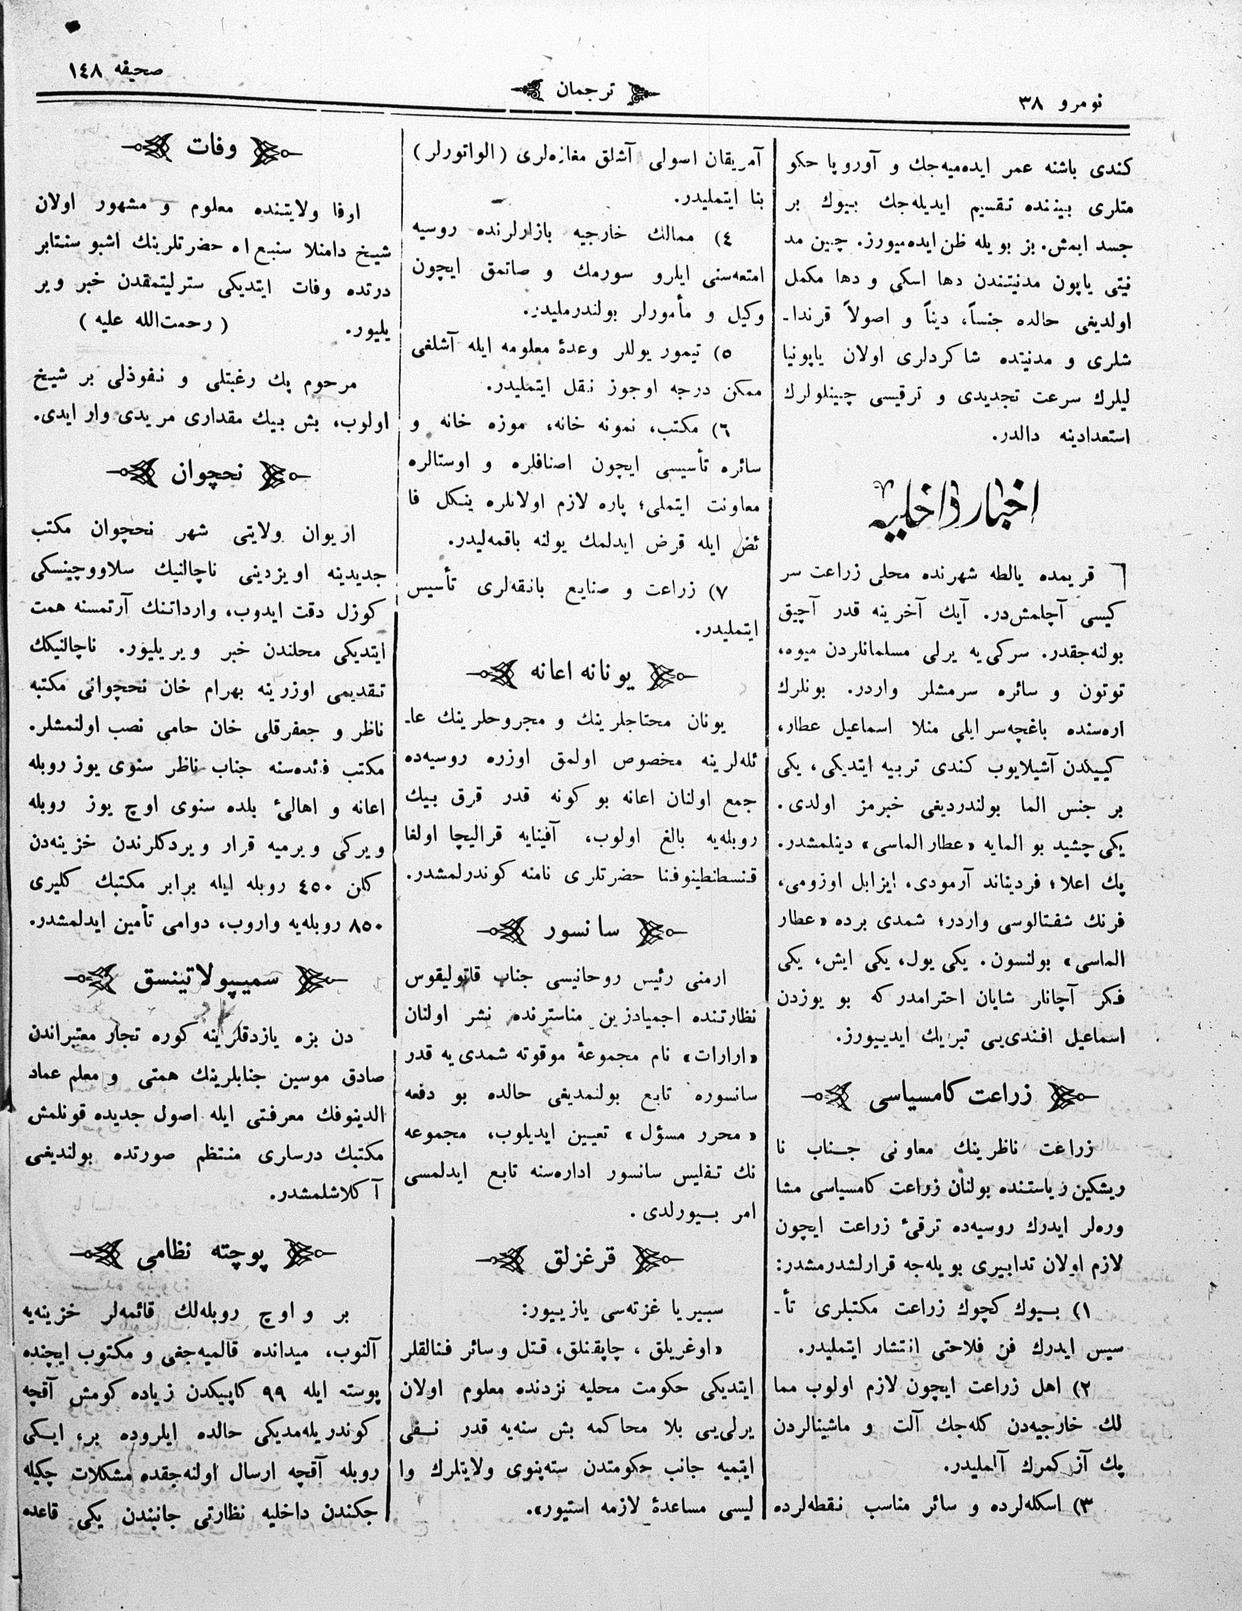 نومرو ٣٨
ترجمان
صحیفه ١٤٨
كندی باشنه عمر ایده‌میه‌جك و آوروپا حكو
متلری بیننده تقسیم ایدیله‌جك بیوك بر
جسد ایمش. بز بویله ظن ایده‌میورز. چین مد
نیتی یاپون مدنیتندن دها اسكی و دها مكمل
اولدیغی حالده جنساً، دیناً و اصولاً قرندا۔
شلری و مدنیتده شاكردلری اولان یاپونیا
لیلرك سرعت تجدیدی و ترقیسی چینلولرك
استعدادینه دالدر.
اخبار داخلیه
قریمده یالطه شهرنده محلی زراعت سر
كیسی آچلمش‌در. آیك آخرینه قدر آچیق
بولنه‌جقدر. سركی‌یه یرلی مسلمانلردن میوه،
توتون و سائره سرمشلر واردر. بونلرك
اره‌سنده باغچه‌سرایلی منلا اسماعیل عطار،
كییكدن آشیلایوب كندی تربیه ایتدیكی، یكی
بر جنس الما بولندردیغی خبرمز اولدی.
یكی چشید بو المایه «عطار الماسی» دینلمشدر.
پك اعلا؛ فردیناند آرمودی، ایزابل اوزومی،
فرنك شفتالوسی واردر؛ شمدی برده «عطار
الماسی» بولنسون. یكی یول، یكی ایش، یكی
فكر آچانلر شایان احترامدركه بو یوزدن
اسماعیل افندی‌یی تبریك ایدییورز.
زراعت كامسیاسی
زراعت ناظرینك معاونی جناب نا
ریشكین ریاستنده بولنان زراعت كامسیاسی مشا
وره‌لر ایدرك روسیه‌ده ترقیٔ زراعت ایچون
لازم اولان تدابیری بویله‌جه قرارلشدرمشدر:
١) بیوك كچوك زراعت مكتبلری تأ۔
سیس ایدرك فن فلاحتی انتشار ایتملیدر.
٢) اهل زراعت ایچون لازم اولوب مما
لك خارجیه‌دن كله‌جك آلت و ماشینالردن
پك آز كمرك آلملیدر.
٣) اسكله‌لرده و سائر مناسب نقطه‌لرده
آمریقان اسولی آشلق مغازه‌لری (الواتورلر)
بنا ایتملیدر.
٤) ممالك خارجیه بازارلرنده روسیه
امتعه‌سنی ایلرو سورمك و صاتمق ایچون
وكیل و مأمورلر بولندرملیدر.
٥) تیمور یوللر وعدهٔ معلومه ایله آشلغی
ممكن درجه اوجوز نقل ایتملیدر.
٦) مكتب، نمونه خانه، موزه خانه و
سائره تأسیسی ایچون اصنافلره و اوستالره
معاونت ایتملی؛ پاره لازم اولانلره ینكل فا
ئض ایله قرض ایدلمك یولنه باقمه‌لیدر.
٧) زراعت و صنایع بانقه‌لری تأسیس
ایتملیدر.
یونانه اعانه
یونان محتاجلرینك و مجروحلرینك عا۔
ئله‌لرینه مخصوص اولمق اوزره روسیه‌ده
جمع اولنان اعانه بوكونه قدر قرق بیك
روبله‌یه بالغ اولوب، آفینایه قرالیچا اولغا
قنسطنطینوفنا حضرتلری نامنه كوندرلمشدر.
سانسور
ارمنی رئیس روحانیسی جناب قاتولیقوس
نظارتنده اجمیادزین مناسترنده نشر اولنان
«ارارات» نام مجموعهٔ موقوته شمدی‌یه قدر
سانسوره تابع بولنمدیغی حالده بو دفعه
«محرر مسؤل» تعیین ایدیلوب، مجموعه
نك تفلیس سانسور اداره‌سنه تابع ایدلمسی
امر بیورلدی.
قرغزلق
سبیریا غزته‌سی یازییور:
«اوغریلق، چاپقنلق، قتل و سائر فنالقلر
ایتدیكی حكومت محلیه نزدنده معلوم اولان
یرلی‌یی بلا محاكمه بش سنه‌یه قدر نفی
ایتمیه جانب حكومتدن سته‌پنوی ولایتلرك وا
لیسی مساعدهٔ لازمه استیور».
وفات
اوفا ولایتنده معلوم و مشهور اولان
شیخ داملا حضرتلرینك اشبو سنتابر
درتده وفات ایتدیكی سترلیتمقدن خبر ویر
یلیور. (رحمت‌الله علیه)
مرحوم پك رغبتلی و نفوذلی بر شیخ
اولوب، بش بیك مقداری مریدی وار ایدی.
نخچوان
اریوان ولایتی شهر نخچوان مكتب
جدیدینه اویزدینی ناچالنیك سلاووچینسكی
كوزل دقت ایدوب، وارداتنك آرتمسنه همت
ایتدیكی محلندن خبر ویریلیور. ناچالنیكك
تقدیمی اوزرینه بهرام خان نخچوانی مكتبه
ناظر و جعفرقلی خان حامی نصب اولنمشلر.
مكتب فائده‌سنه جناب ناظر سنوی یوز روبله
اعانه و اهالیٔ بلده سنوی اوچ یوز روبله
ویركی ویرمیه قرار ویردكلرندن خزینه‌دن
كلن ٤٥٠ روبله لیله برابر مكتبك كلیری
٨٥٠ روبله‌یه واروب، دوامی تأمین ایدلمشدر.
سمیپولاتینسق
دن بزه یازدقلرینه كوره تجار معتبراندن
صادق موسین جنابلرینك همتی و معلم عماد
الدینوفك معرفتی ایله اصول جدیده قونلمش
مكتبك درساری منتظم صورتده بولندیغی
آكلاشلمشدر.
پوچته نظامی
بر و اوچ روبله‌لك قائمه‌لر خزینه‌یه
آلنوب، میدانده قالمیه‌جغی و مكتوب ایچنده
پوسته ایله ٩٩ كاپیكدن زیاده كومش آقچه
كوندریله‌مدیكی حالده ایلروده بر، ایكی
روبله آقچه ارسال اولنه‌جقده مشكلات چكیله
جكندن داخلیه نظارتی جانبندن یكی قاعده